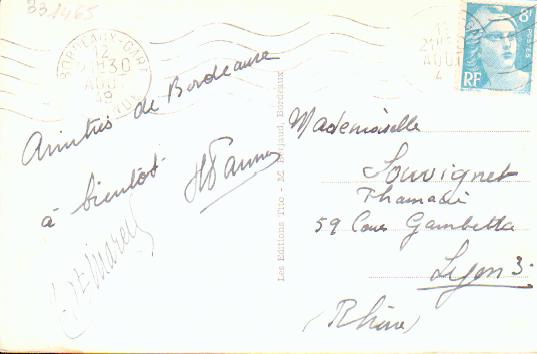 331465
BORDEAUX-GARE
12
21H30
AOUT
8F
POSTES
RF
Amitiés de Bordeaux
à bientot
Les Editions Tito - Bordeaux
Mademoiselle
Souvignet
Pharmacie
59 Cours Gambetta
Lyon 3.
(Rhône)